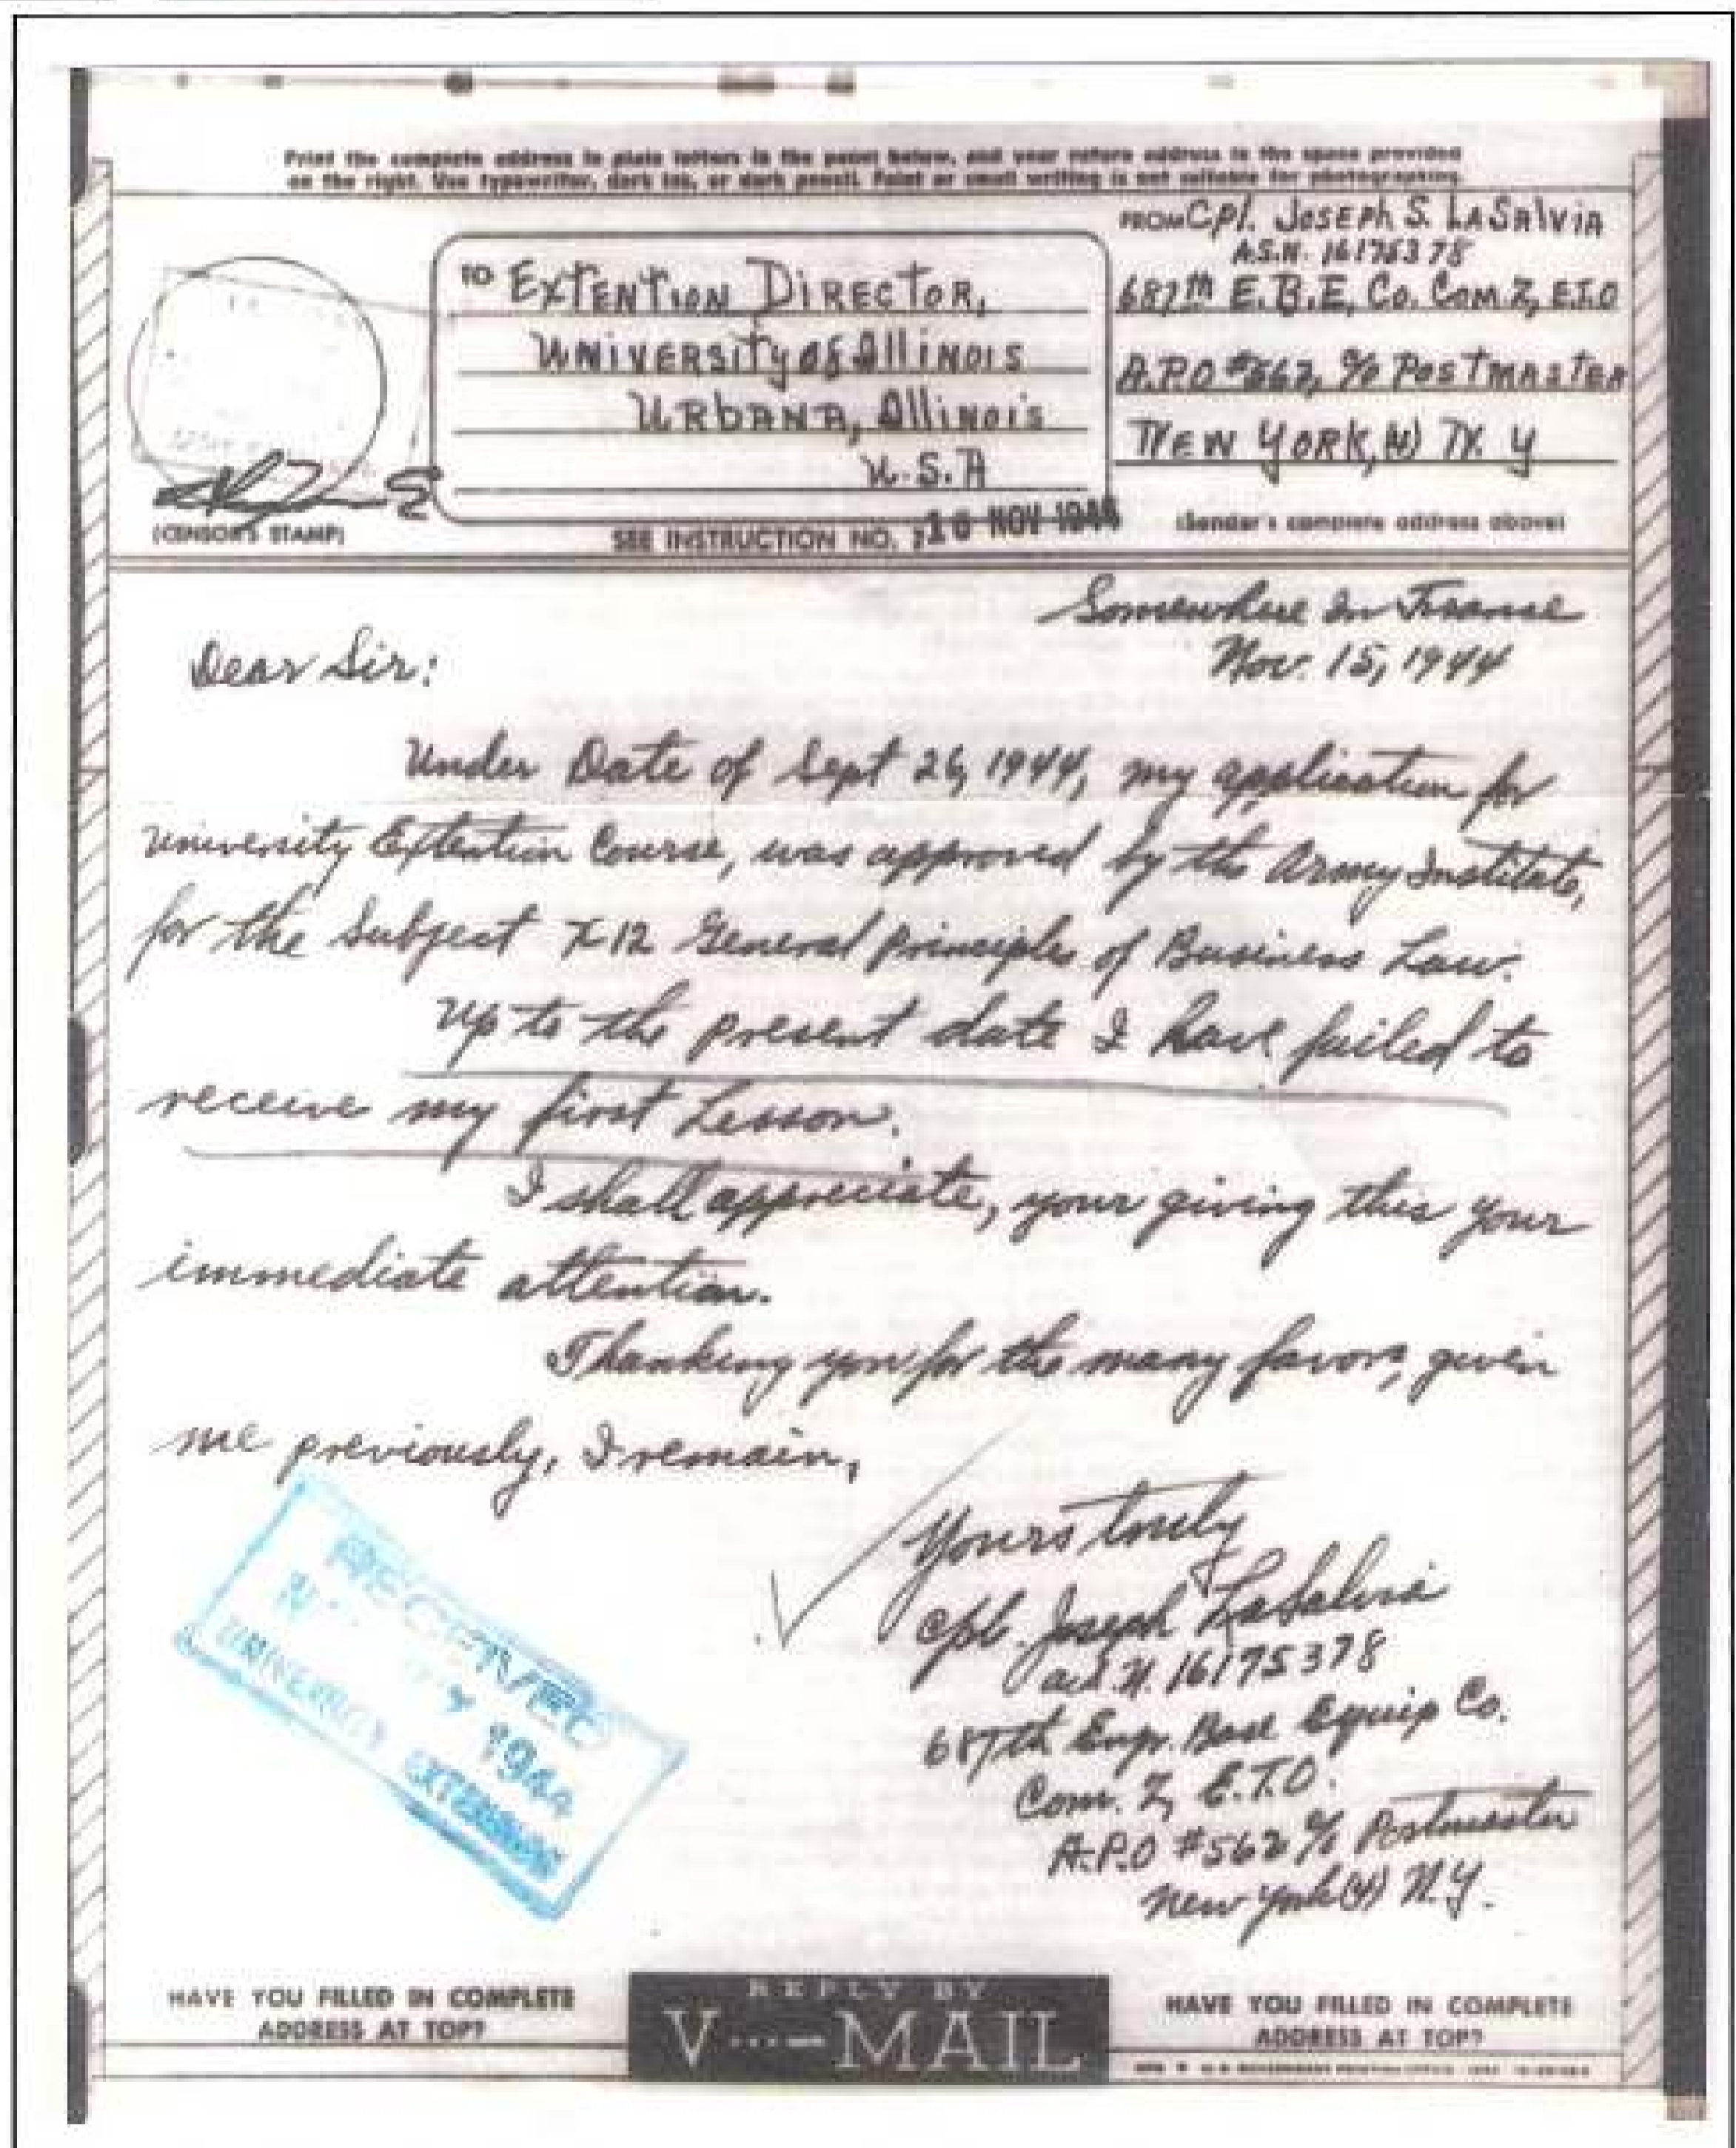 Print the complete address in plain letters in the panel below, and your return address in the space provided
on the right. Use typewriter, dark ink, or dark pencil. Faint or small writing is not suitable for photographing.
FROM Cpl. Joseph S. LaSalvia
A.S.N. 16175378
687th E.B.E, Co. Com Z, E.T.O
A.P.O #562, c/o Postmaster
New York, (4) N. Y
TO Extention Director,
University of Illinois
Urbana, Illinois
U.S.A
(CENSOR'S STAMP)
SEE INSTRUCTION NO. 2
16 NOV 1944
(Sender's complete address above)
Somewhere In France
Nov. 15, 1944
Dear Sir:
Under Date of Sept 26, 1944, my application for
University Extention Course, was approved by the Army Institute,
for the Subject X-12 General principles of Business Law.
Up to the present date I have failed to
receive my first Lesson.
I shall appreciate, your giving this your
immediate attention.
Thanking you for the many favors, given
me previously, I remain,
Yours truly
Cpl. Joseph LaSalvia
16175378
687th Engr. Base Equip Co.
Com. Z, E.T.O.
A.P.O #562 c/o Postmaster
New York (4) N.Y.
RECEIVED
1944
UNIVERSITY EXTENSION
HAVE YOU FILLED IN COMPLETE
ADDRESS AT TOP?
REPLY BY
V···—MAIL
HAVE YOU FILLED IN COMPLETE
ADDRESS AT TOP?
U.S. GOVERNMENT PRINTING OFFICE